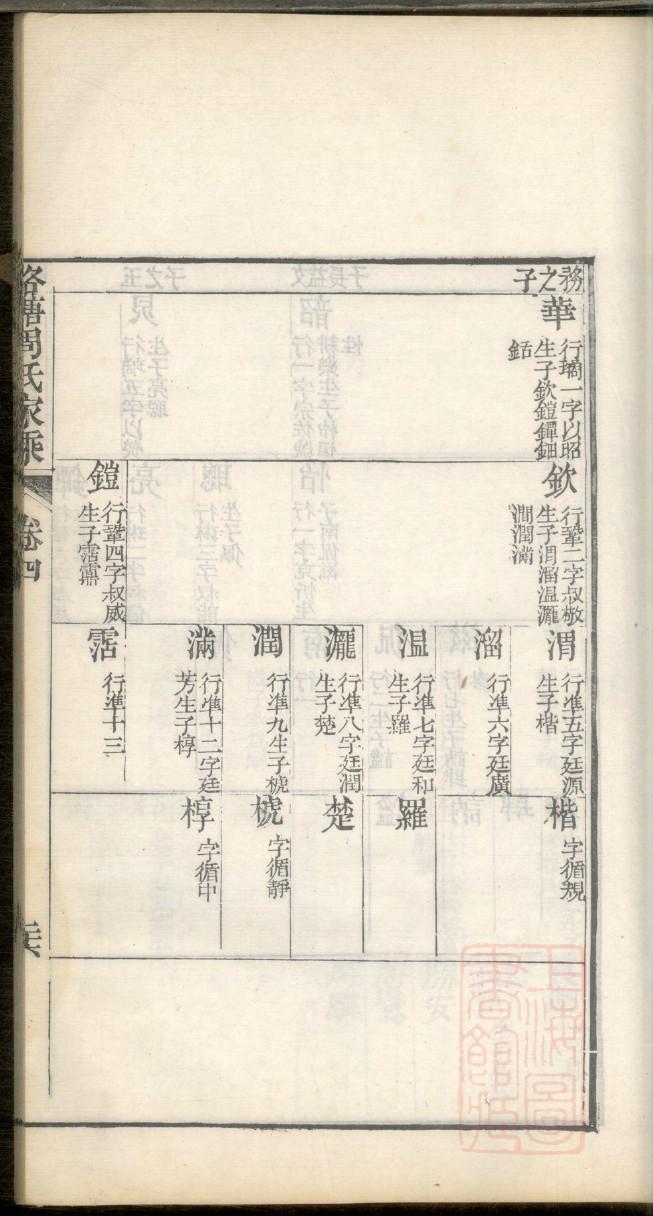 務之子
華
行瑀一字以昭
生子欽鎧鐸鈿
銛
欽
行鞏二字叔敬
生子渭溜温灉
澗潤滿
鎧
行鞏四字叔威
生子霑霢
渭
行準五字廷源
生子楷
溜
行準六字廷廣
温
行準七字廷和
生子羅
灉
行準八字廷潤
生子楚
潤
行準九生子樾
滿
行準十二字廷
芳生子椁
霑
行準十三
楷
字循規
羅
楚
樾
字循靜
椁
字循中
周氏家乘
卷四
上海圖書館藏